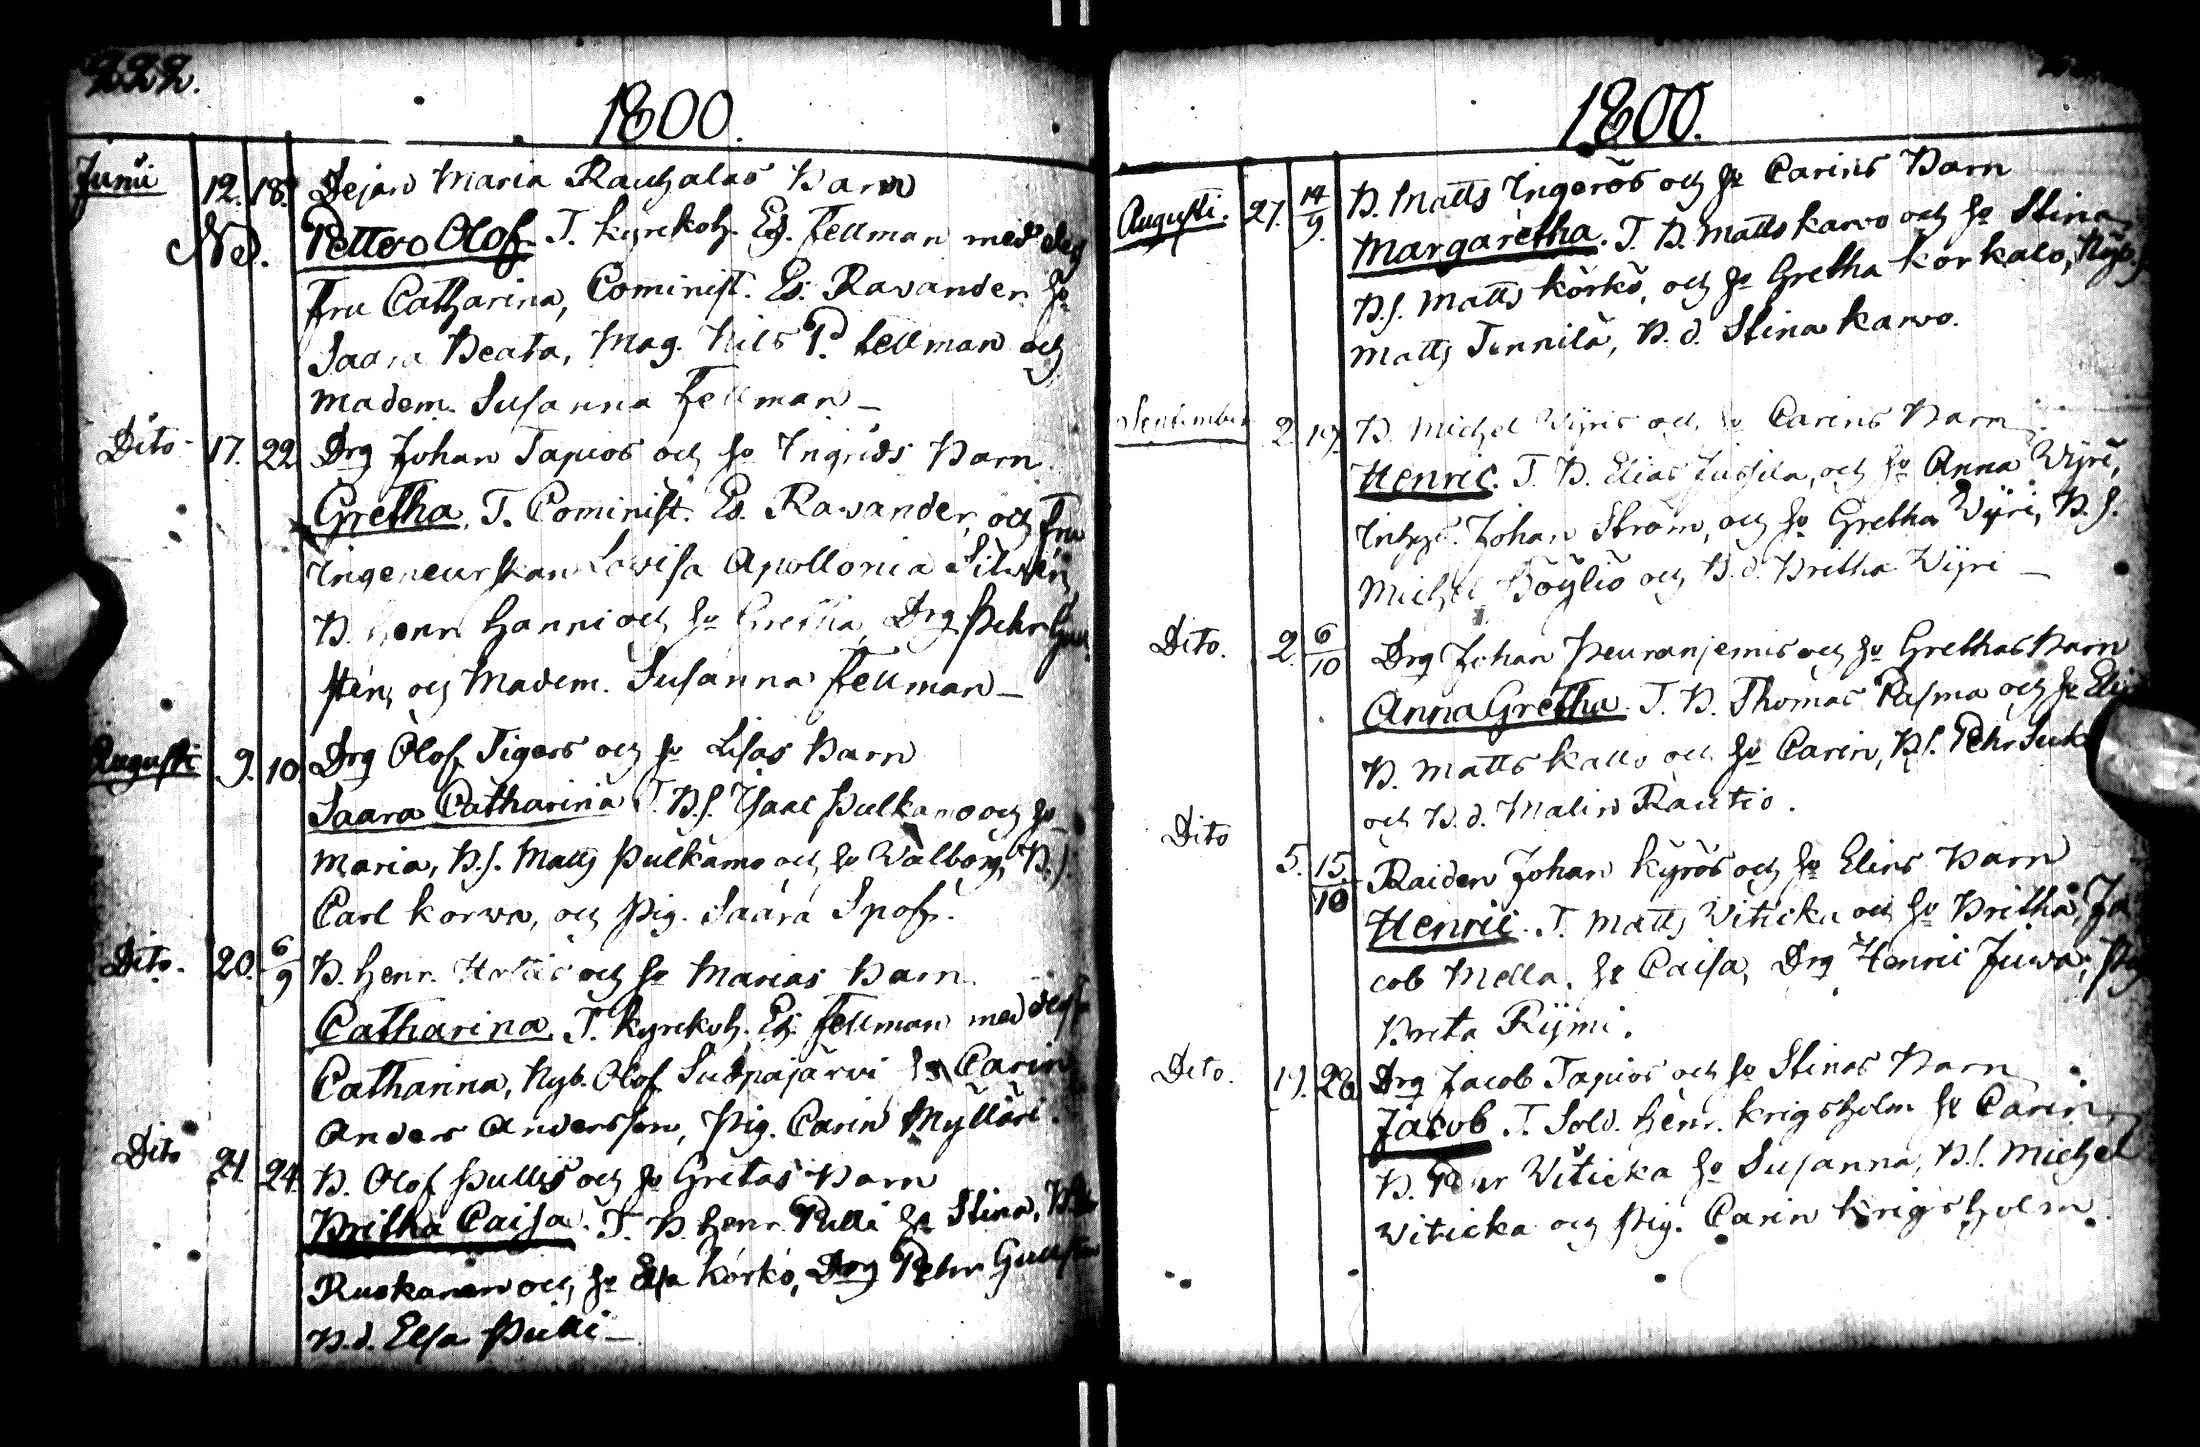 222.
1800.
Junii 12. 18. Pejan Maria Rautzalas Barn
NB. Petter Olof. T. Kyrckoh. Es. Fellman med dess
Fru Catharina, Cominist. Es. Ravander, h:o
Saara Beata, Mag. Nils P. Fellman och
Madem. Susanna Fellman –
Dito 17. 22 Drg Johan Tapios och h:o Ingrids Barn
Gretha. T. Cominist. Es. Ravander, och Fru
Ingeneurskan Lovisa Apollonia Silvén
B. Henr. Hanni och h:o Gretha, Drg Pehr Gull
stén, och Madem. Susanna Fellman –
Augusti 9. 10. Drg Olof Tigers och h:o Lisas Barn
Saara Catharina T. B.s. Isaac Pulkamo och h:o
Maria, B.s. Matts Pulkamo och h:o Walborg, B.s.
Carl Korva, och Pig. Saara Spof.
Dito. 20. 6/9 B. Henr. och h:o Marias Barn
Catharina. T. Kyrckoh. Es. Fellman med dess
Catharina, Nyb. Olof Suopajärvi h:o Carin
Anders Andersson, Pig. Carin Mylläri.
Dito 21. 24. B. Olof Pullis och h:o Gretas Barn
Britha Caisa. T. B. Henr. Pulli h:o Stina, B.
Ruokanen och h:o Elsa Körkö, Drg Pehr Gullsten
B.d. Elsa Pulli –
1800.
Augusti. 27. 14/9. B. Matts Ingerös och h:o Carins Barn
Margaretha. T. B. Matts Karvo och h:o Stina
B.s. Matts Körkö, och h:o Gretha Korkalo, Nyb.s.
Matts Tennilä, B.d. Stina Karvo.
September 2. 19. B. Michel Wyris och h:o Carins Barn
Henric. T. B. Elias Jussila, och h:o Anna Wyri,
Inhys. Johan Ström, och h:o Gretha Wyri, B.s.
Michel Böyliö och B.d. Britha Wyri –
Dito. 2. 6/10 Drg Johan Peuranjemis och h:o Grethas Barn
Anna Gretha. T. B. Thomas Pasma och h:o
B. Matts Kallo och h:o Carin, B.s. Pehr
och B.d. Malin Rautio.
Dito 5. 15/10 Raiden Johan Kyrös och h:o Elins Barn
Henric. T. Matts Viticka och h:o Britha, Ja
cob Mella, h:o Caisa, Drg Henric Juwa, Pig
Breta Rymi.
Dito. 19. 28. Drg Jacob Tapios och h:o Stinas Barn
Jacob. T. Sold. Henr. Krigsholm h:o Carin,
B. Peter Viticka h:o Susanna, B.s. Michel
Viticka och Pig. Carin Krigsholm.